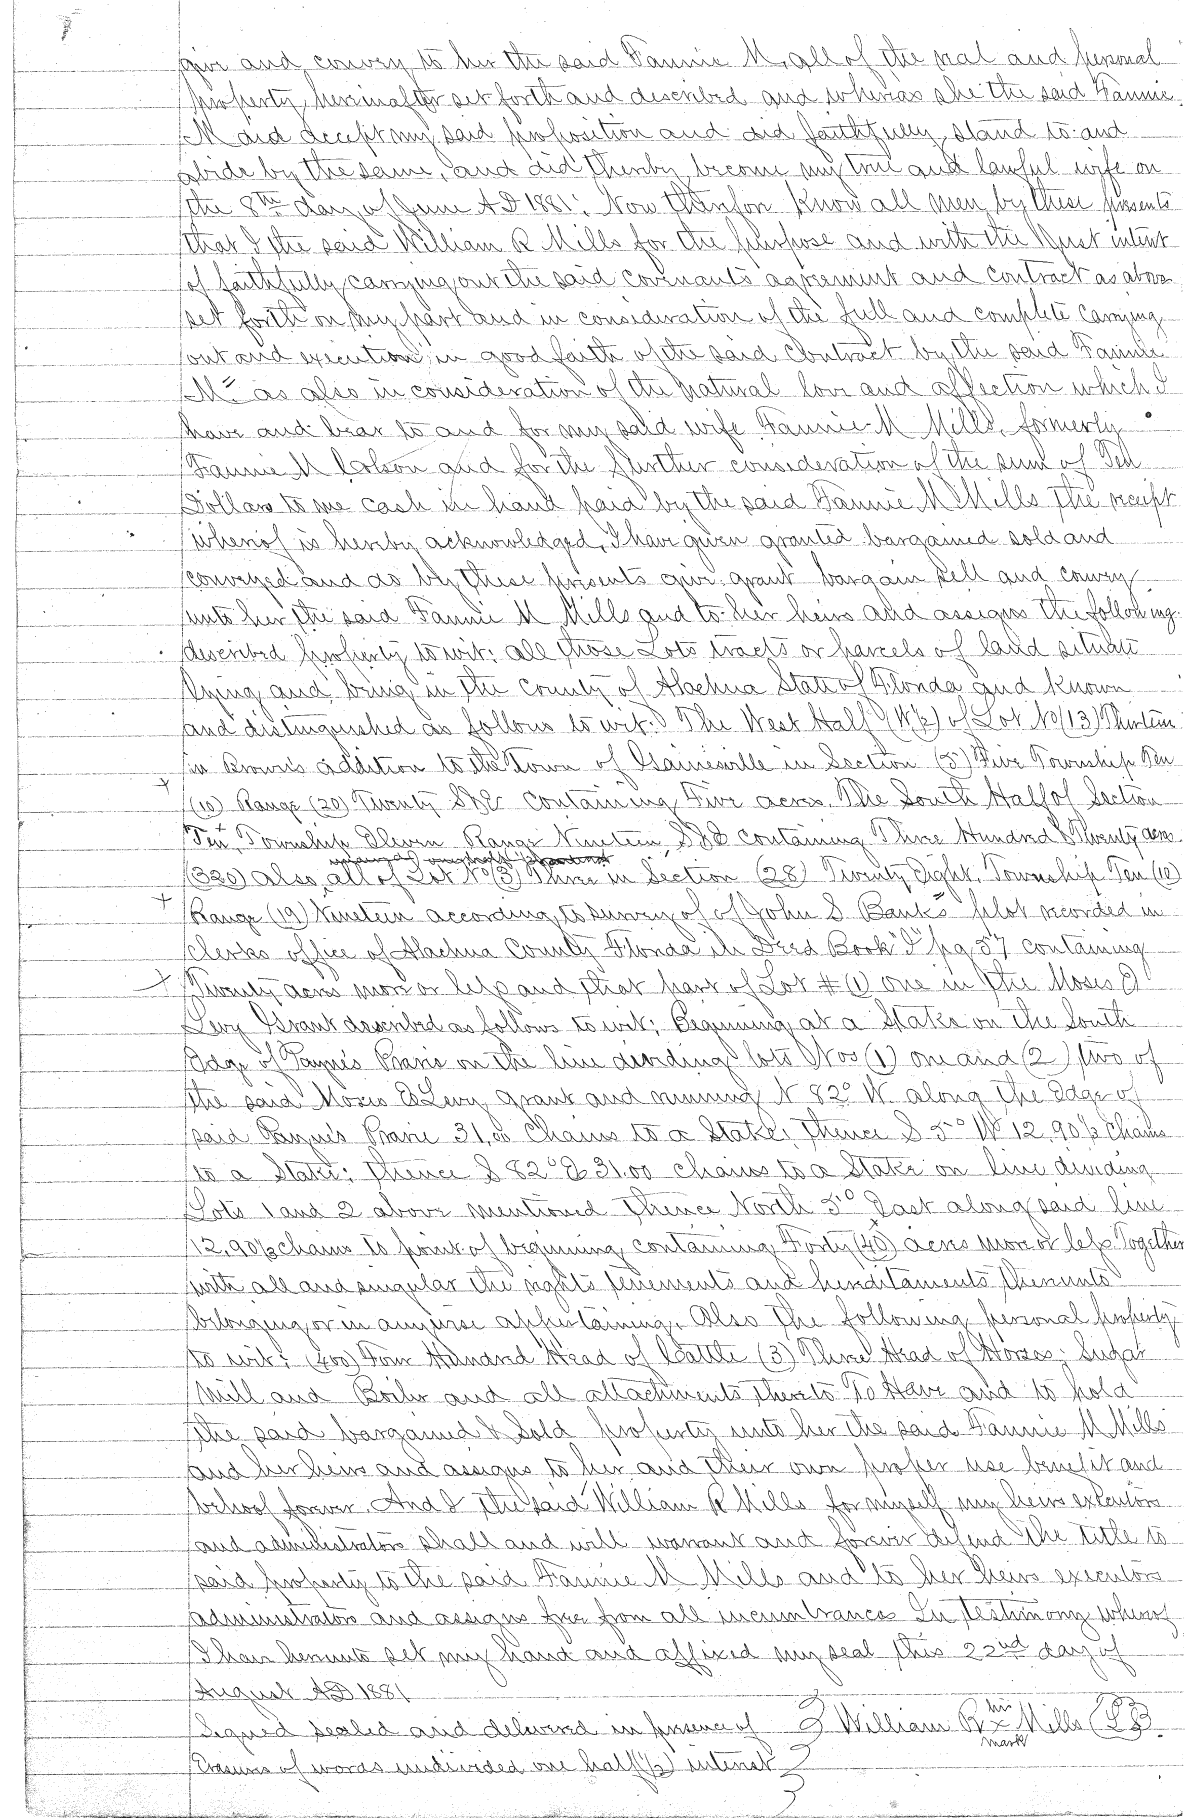 give and convey to her the said Fannie M, all of the real and personal
property hereinafter set forth and described and whereas she the said Fannie
M did accept my said proposition and did faithfully stand to and
abide by the same, and did thereby become my true and lawful wife on
the 8th day of June AD 1881; Now therefore Know all men by these presents
that I the said William R Mills for the purpose and with the just intent
of faithfully carrying out the said covenants agreement and contract as above
set forth on my part and in consideration of the full and complete carrying
out and execution in good faith of the said Contract by the said Fannie
M. as also in consideration of the natural love and affection which I
have and bear to and for my said wife Fannie M Mills, formerly
Fannie M Colson and for the further consideration of the sum of Ten
Dollars to me cash in hand paid by the said Fannie M Mills the receipt
whereof is hereby acknowledged, I have given granted bargained sold and
conveyed and do by these presents give grant bargain sell and convey
unto her the said Fannie M Mills and to her heirs and assigns the following
described property to wit: all those Lots tracts or parcels of land situate
lying and being in the County of Alachua State of Florida and known
and distinguished as follows to wit: The West Half (W½) of Lot No (13) Thirteen
in Brown's addition to the Town of Gainesville in Section (5) Five Township Ten
(10) Range (20) Twenty S&E containing Five acres. The South Half of Section
Ten, Township Eleven Range Nineteen, S&E containing Three Hundred & Twenty acres
(320) also all of Lot No (3) Three in Section (28) Twenty Eight, Township Ten (10)
Range (19) Nineteen according to survey of of John S. Bank's plot recorded in
clerks office of Alachua County Florida in Deed Book "I" pg 57 containing
Twenty acres more or less and that part of Lot # (1) one in the Moses E
Levy Grant described as follows to wit; Beginning at a Stake on the South
Edge of Payne's Prarie on the line dividing lots Nos (1) one and (2) two of
the said Moses E Levy grant and running N 82° W. along the Edge of
said Payne's Prarie 31,00 Chains to a Stake; thence S 5° W 12.90½ Chains
to a Stake; thence S 82° E 31.00 chains to a Stake on line dividing
Lots 1 and 2 above mentioned thence North 5° East along said line
12,90½ chains to point of beginning containing Forty (40) acres more or less Together
with all and singular the rights tenements and hereditaments thereunto
belonging or in anywise appertaining. Also the following personal property
to wit; (400) Four Hundred Head of Cattle (3) Three Head of Horses; Sugar
Mill and Boiler and all attachments thereto To Have and to hold
the said bargained & Sold property unto her the said Fannie M Mills
and her heirs and assigns to her and their own proper use benefit and
behoof forever. And I the said William R Mills for myself my heirs executors
and administrators shall and will warrant and forever defend the title to
said property to the said Fannie M Mills and to her heirs executors
administrators and assigns free from all incumbrances In testimony whereof
I have hereunto set my hand and affixed my seal this 22nd day of
August AD 1881
Signed sealed and delivered in presence of } William R his x mark Mills (LS)
Erasure of words undivided one half (½) interest }